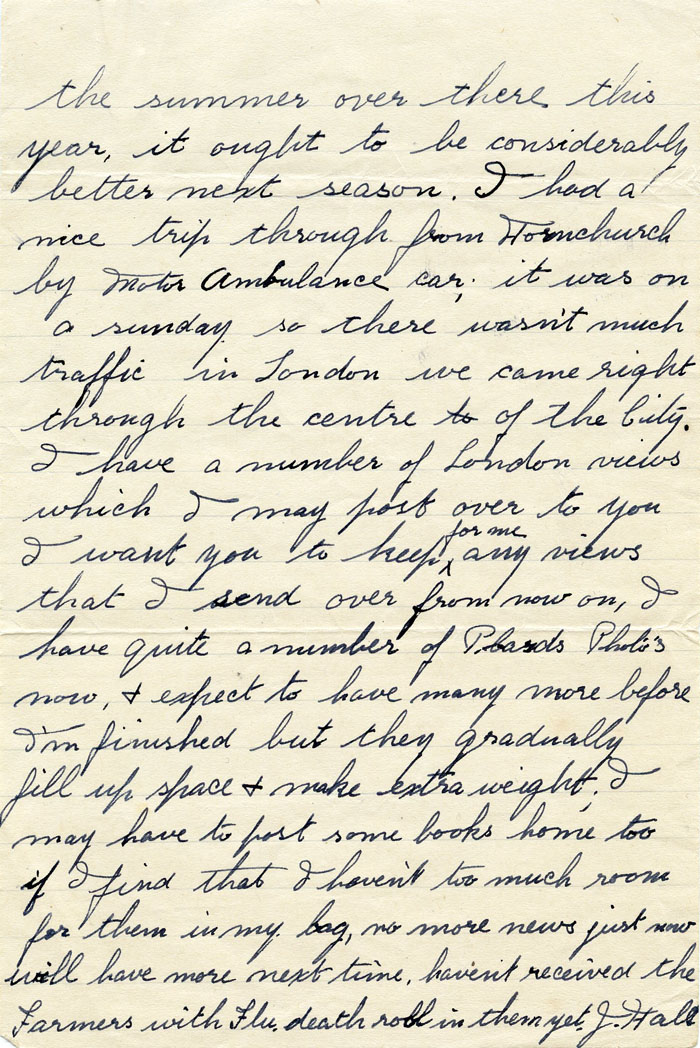 the summer over there this
year, it ought to be considerably
better next season. I had a
nice trip through from Hornchurch
by Motor Ambulance car; it was on
a sunday so there wasn't much
traffic in London we came right
through the centre to of the City.
I have a number of London views
which I may post over to you
for me
I want you to keep ^ any views
that I send over from now on, I
have quite a number of P.cards Photo's
now, & expect to have many more before
I'm finished but they gradually
fill up space & make extra weight, I
may have to post some books home too
if I find that I haven't too much room
for them in my bag, no more news just now
will have more next time, haven't received the
Farmers with Flu. death roll in them yet. J. Hall